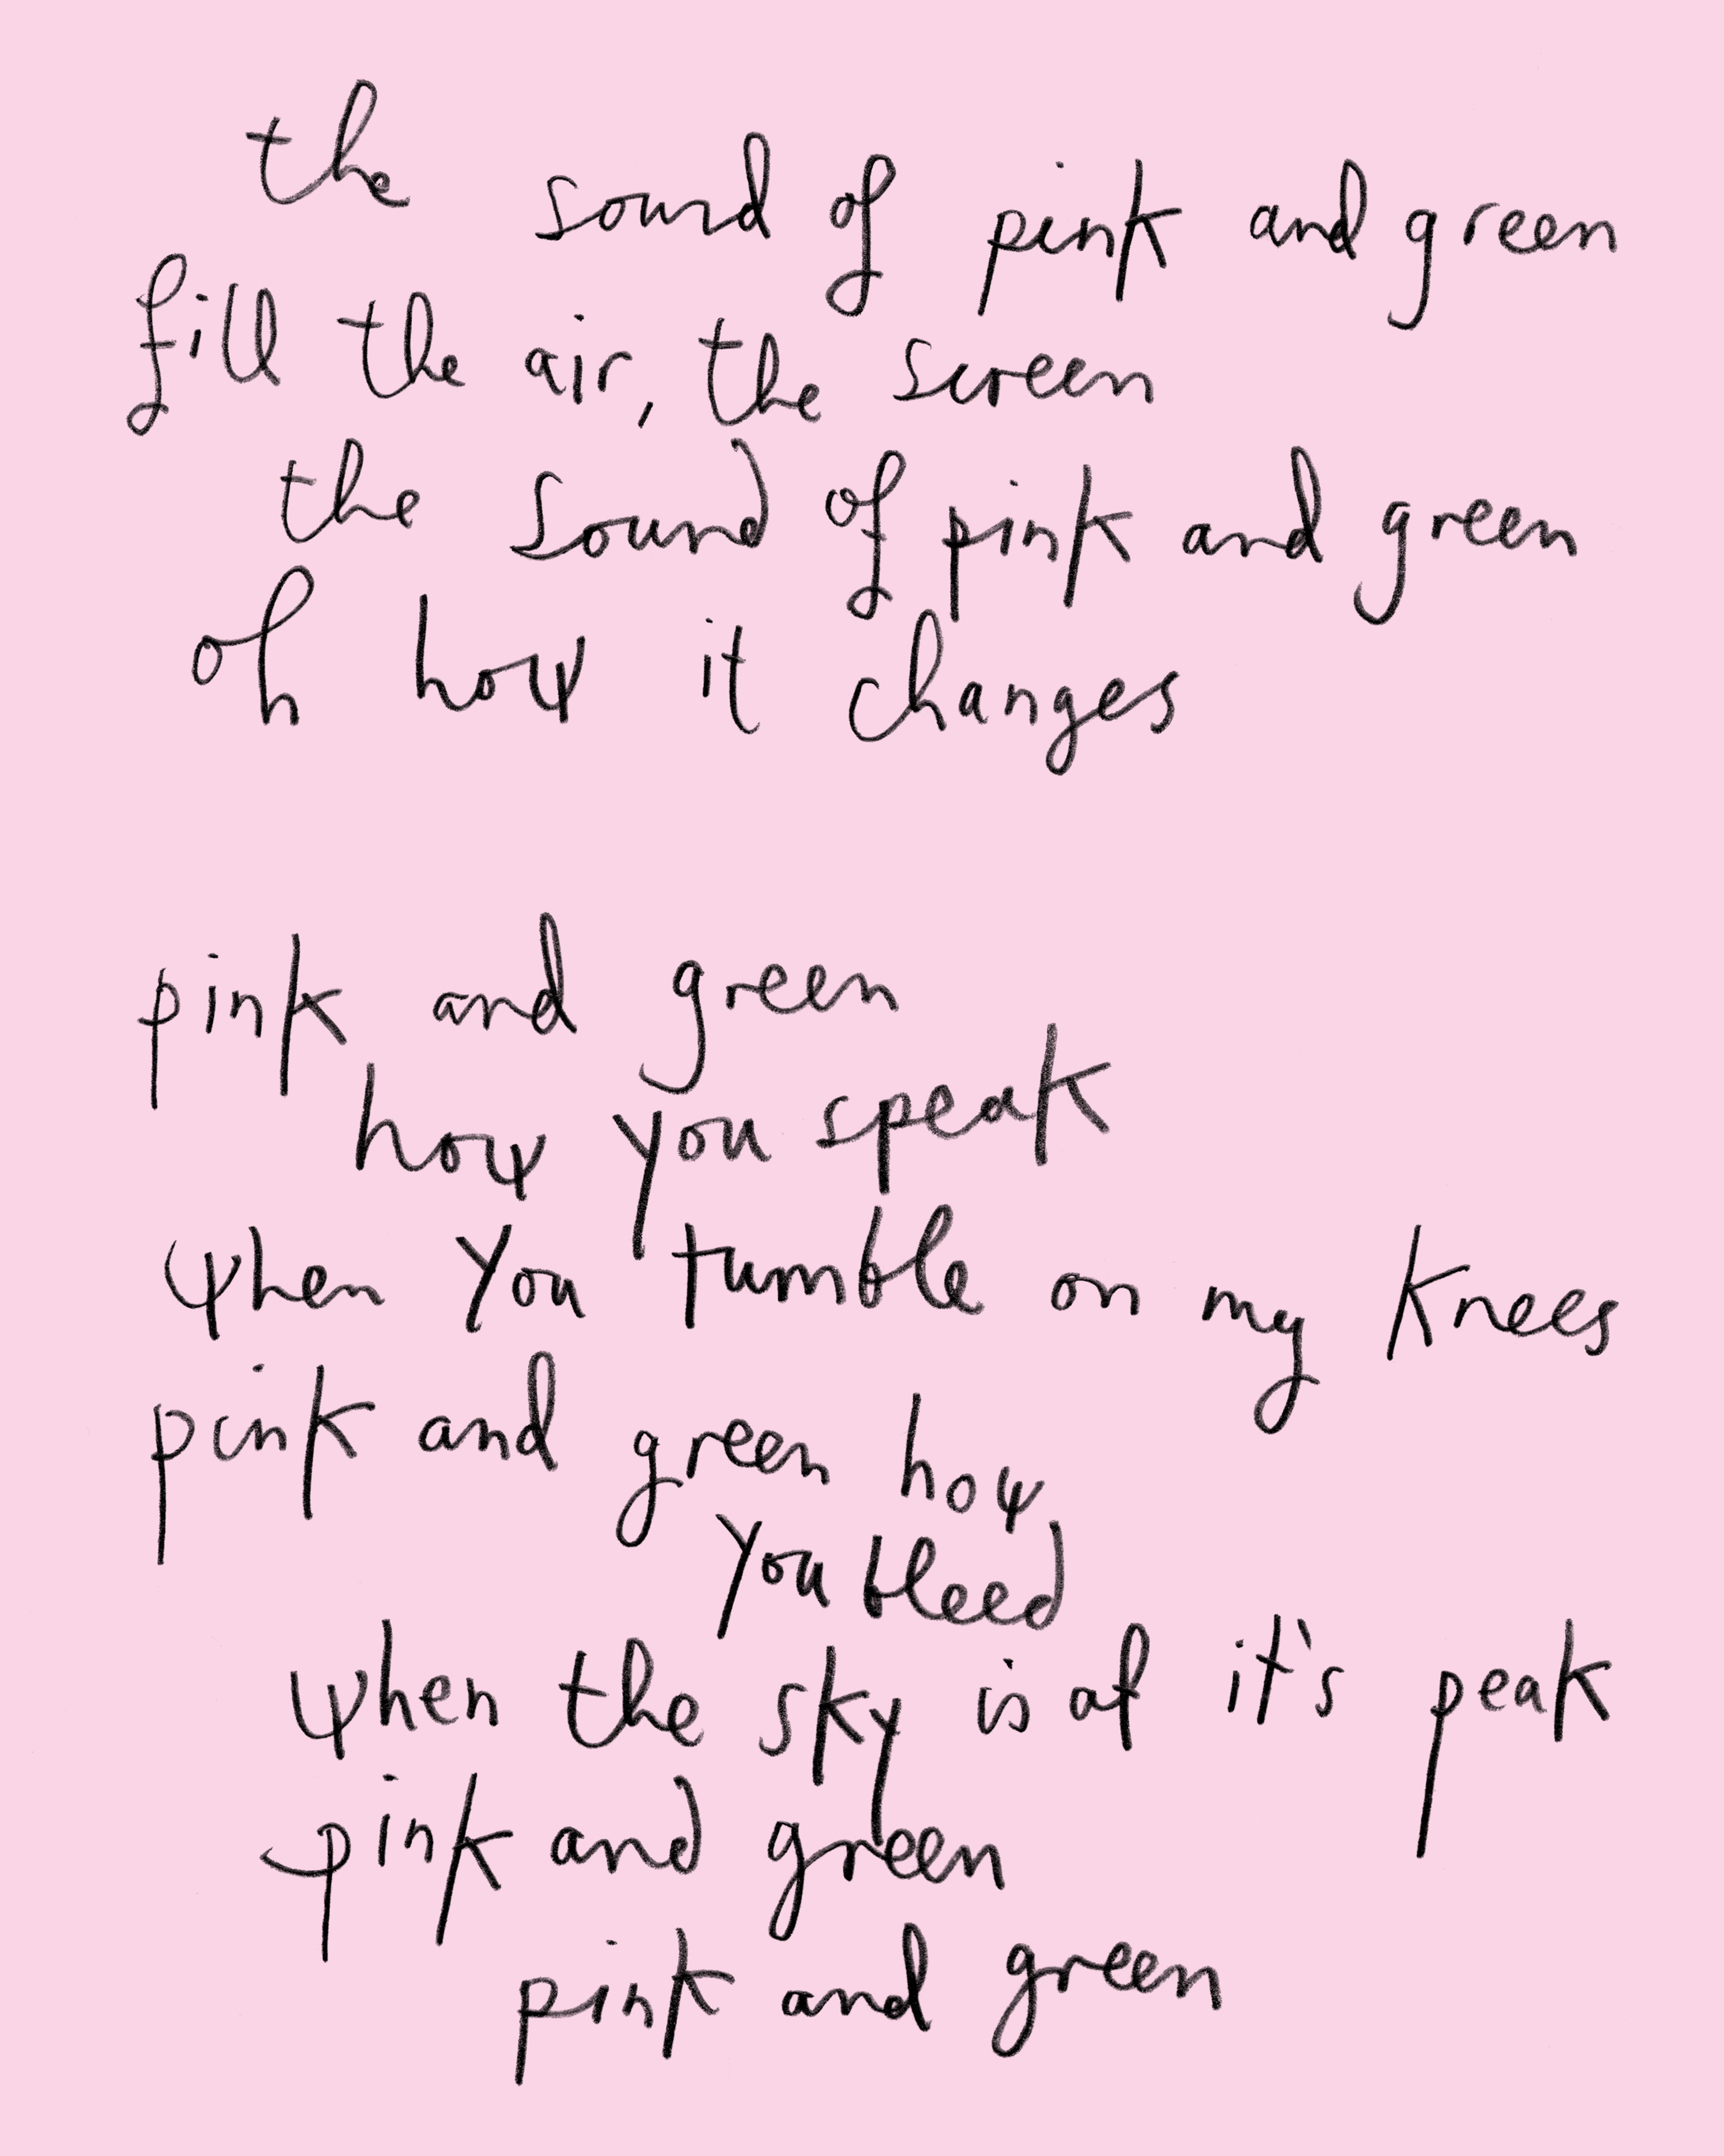 the sound of pink and green
fill the air, the screen
the sound of pink and green
oh how it changes
pink and green
how you speak
when you tumble on my knees
pink and green how
you bleed
when the sky is at it's peak
pink and green
pink and green